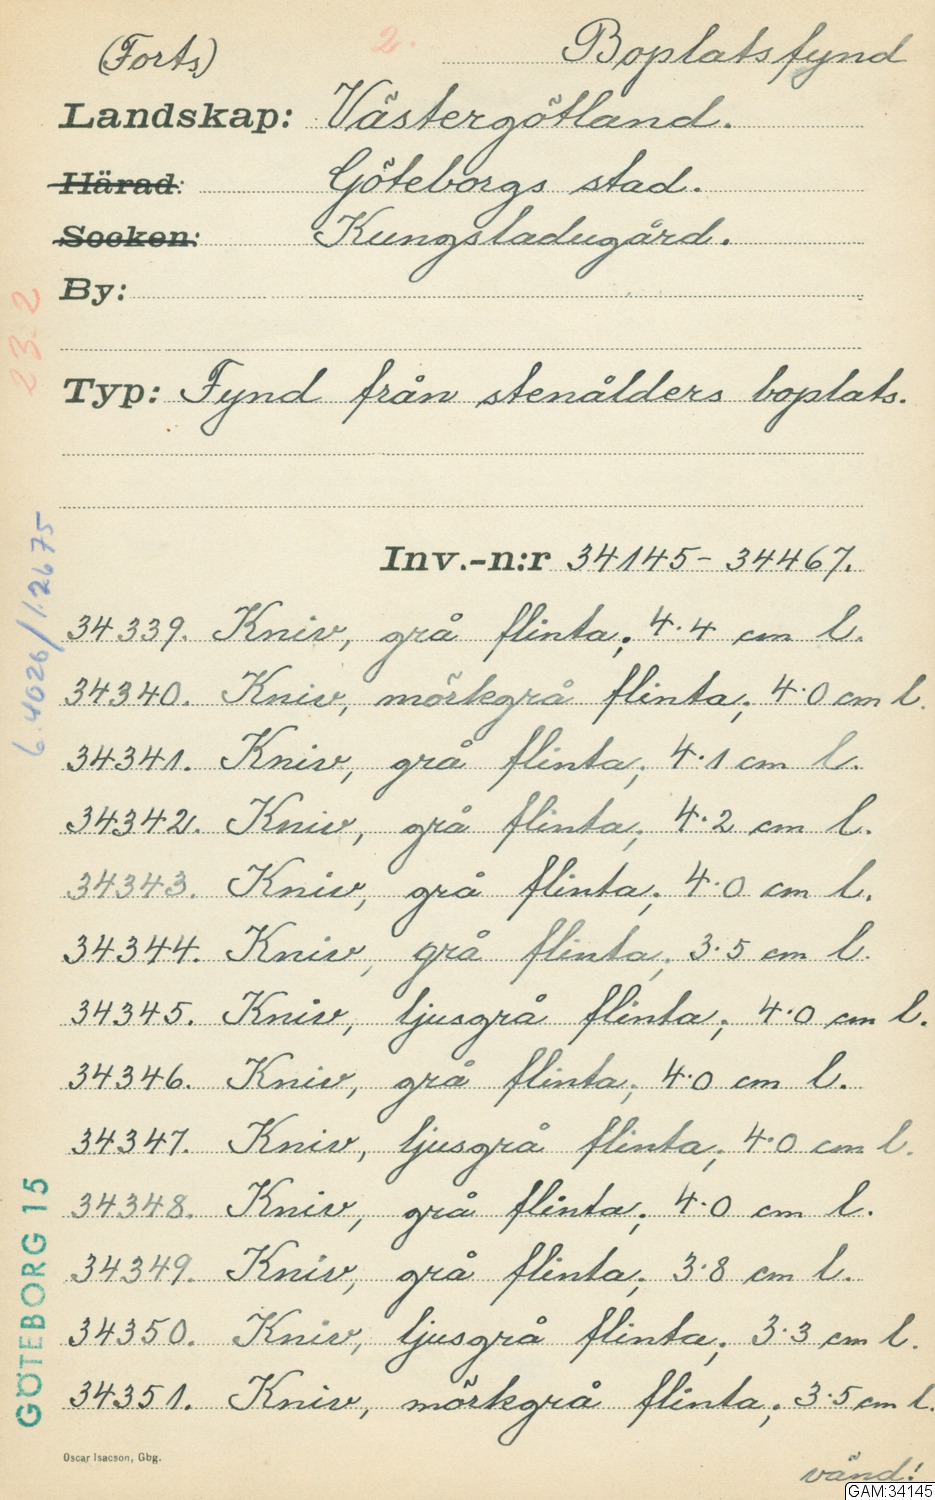 (Forts) 2. Boplatsfynd
Landskap: Västergötland.
Härad: Göteborgs stad.
Socken: Kungsladugård.
By:
Typ: Fynd från stenålders boplats.
Inv.-n:r 34145-34467.
34339. Kniv, grå flinta; 4.4 cm l.
34340. Kniv, mörkgrå flinta; 4.0 cm l.
34341. Kniv, grå flinta; 4.1 cm l.
34342. Kniv, grå flinta; 4.2 cm l.
34343. Kniv, grå flinta; 4.0 cm l.
34344. Kniv, grå flinta; 3.5 cm l.
34345. Kniv, ljusgrå flinta; 4.0 cm l.
34346. Kniv, grå flinta; 4.0 cm l.
34347. Kniv, ljusgrå flinta; 4.0 cm l.
34348. Kniv, grå flinta; 4.0 cm l.
34349. Kniv, grå flinta; 3.8 cm l.
34350. Kniv, ljusgrå flinta; 3.3 cm l.
34351. Kniv, mörkgrå flinta; 3.5 cm l.
Oscar Isacson, Gbg.
vänd!
GAM:34145
23.2
GÖTEBORG 15